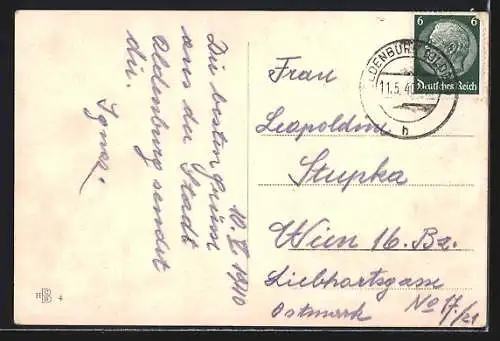 10. V. 1940
Die besten Grüsse
aus der Stadt
Oldenburg sendet
dir.
Ignaz.
6 6
Deutsches Reich
OLDENBURG (OLDB)
11.5.4
h
Frau
Leopoldine
Stupka
Wien 16. Bz.
Liebhartsgasse
No 17/21
Ostmark
H B 4